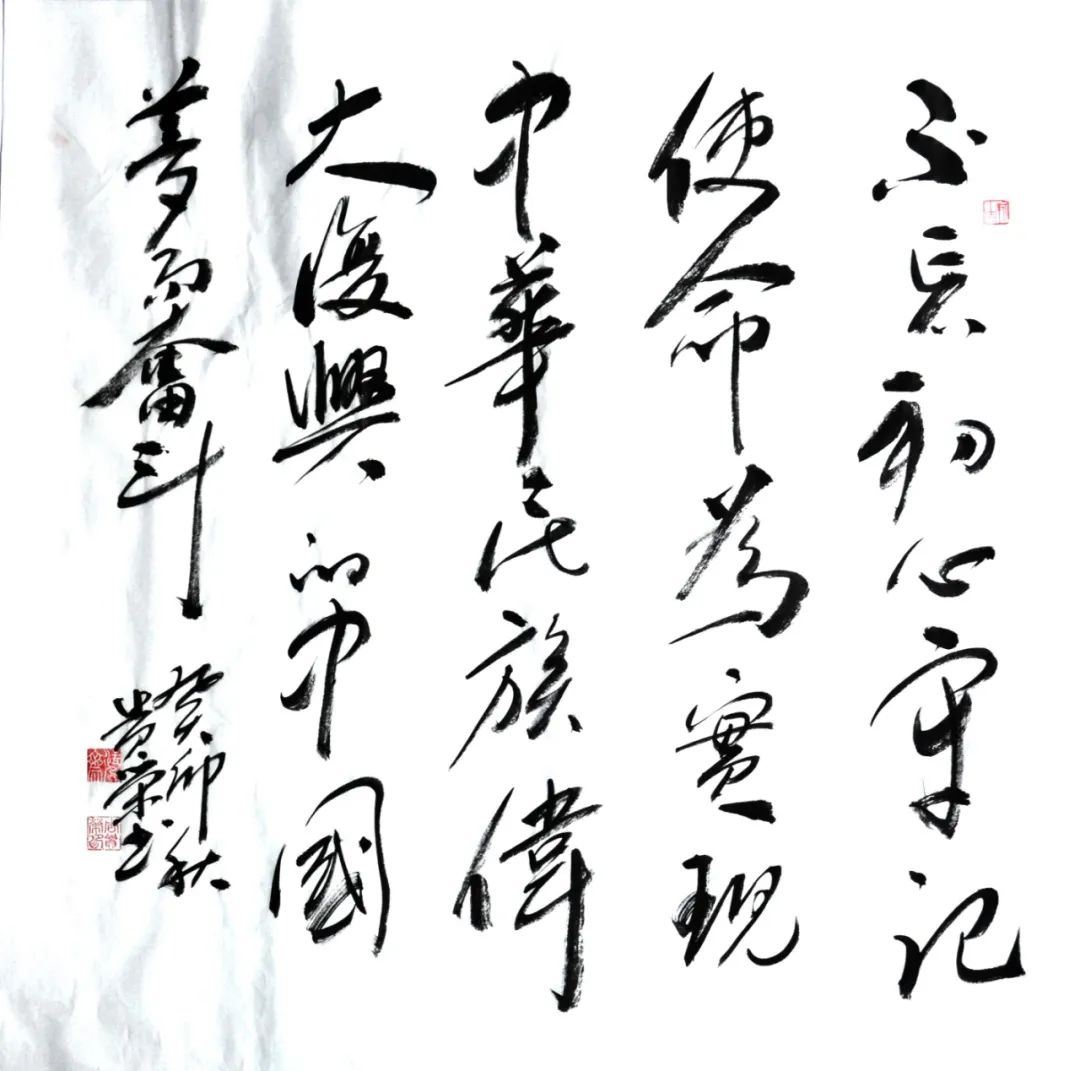 不忘初心牢记
使命為實現
中華民族偉
大復興的中國
夢而奮斗
癸卯秋
贵荣书